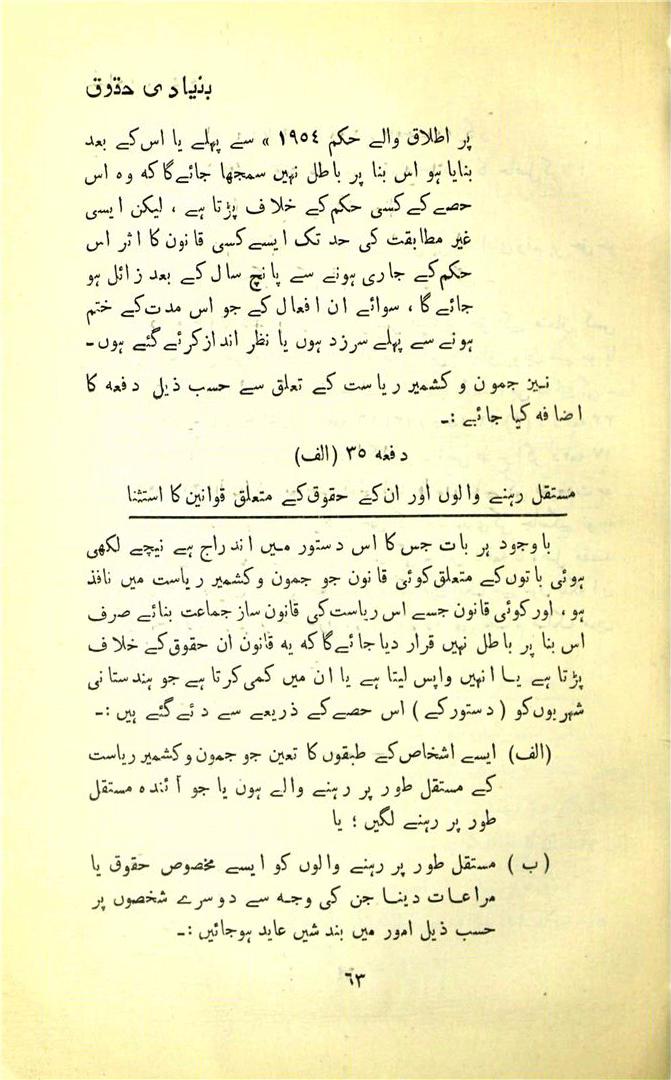 بنیادی حقوق
پر اطلاق والے حکم ۱۹۵۴ » سے پہلے یا اس کے بعد
بنایا ہو اس بنا پر باطل نہیں سمجھا جائے گا کہ وہ اس
حصے کے کسی حکم کے خلاف پڑتا ہے ، لیکن ایسی
غیر مطابقت کی حد تک ایسے کسی قانون کا اثر اس
حکم کے جاری ہونے سے پانچ سال کے بعد زائل ہو
جائے گا ، سوائے ان افعال کے جو اس مدت کے ختم
ہونے سے پہلے سرزد ہوں یا نظر انداز کرئے گئے ہوں۔
نیز جموں و کشمیر ریاست کے تعلق سے حسب ذیل دفعہ کا
اضافہ کیا جائے :۔
دفعہ ۳۵ (الف)
مستقل رہنے والوں اور ان کے حقوق کے متعلق قوانین کا استثنا
باوجود ہر بات جس کا اس دستور میں اندراج ہے نیچے لکھی
ہوئی باتوں کے متعلق کوئی قانون جو جموں و کشمیر ریاست میں نافذ
ہو ، اور کوئی قانون جسے اس ریاست کی قانون ساز جماعت بنائے صرف
اس بنا پر باطل نہیں قرار دیا جائے گا کہ یہ قانون ان حقوق کے خلاف
پڑتا ہے یا انہیں واپس لیتا ہے یا ان میں کمی کرتا ہے جو ہندستانی
شہریوں کو ( دستور کے ) اس حصے کے ذریعے سے دئے گئے ہیں :۔
(الف) ایسے اشخاص کے طبقوں کا تعین جو جموں و کشمیر ریاست
کے مستقل طور پر رہنے والے ہوں یا جو آئندہ مستقل
طور پر رہنے لگیں ؛ یا
( ب ) مستقل طور پر رہنے والوں کو ایسے مخصوص حقوق یا
مراعات دینا جن کی وجہ سے دوسرے شخصوں پر
حسب ذیل امور میں بندشیں عاید ہوجائیں :۔
۶۳